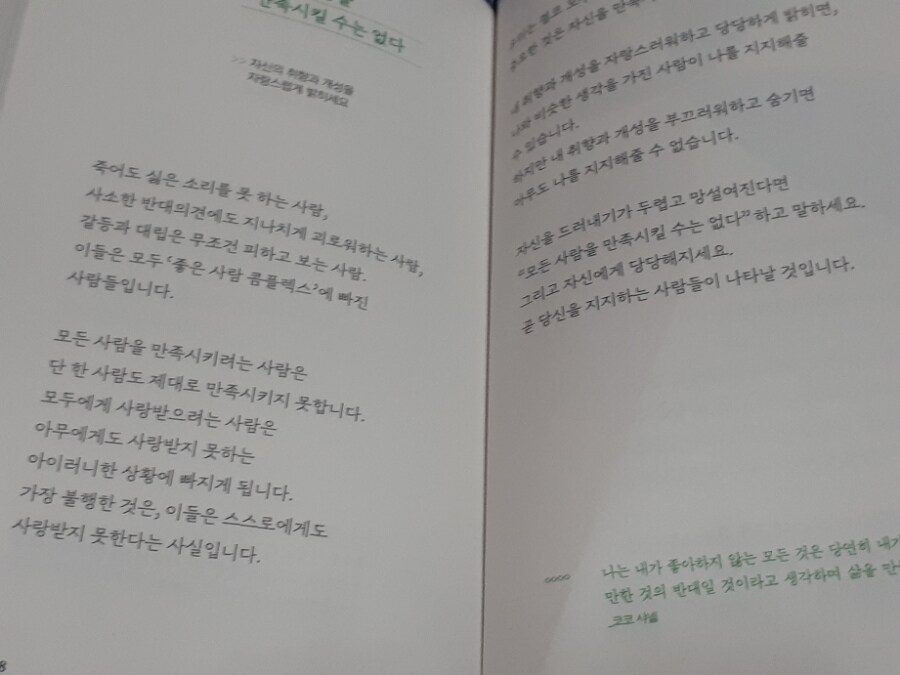 만족시킬 수는 없다
>> 자신의 취향과 개성을
자랑스럽게 밝히세요
죽어도 싫은 소리를 못 하는 사람,
사소한 반대의견에도 지나치게 괴로워하는 사람,
갈등과 대립은 무조건 피하고 보는 사람.
이들은 모두 ‘좋은 사람 콤플렉스’에 빠진
사람들입니다.
모든 사람을 만족시키려는 사람은
단 한 사람도 제대로 만족시키지 못합니다.
모두에게 사랑받으려는 사람은
아무에게도 사랑받지 못하는
아이러니한 상황에 빠지게 됩니다.
가장 불행한 것은, 이들은 스스로에게도
사랑받지 못한다는 사실입니다.
8
것은 자신을
내 취향과 개성을 자랑스러워하고 당당하게 밝히면,
나와 비슷한 생각을 가진 사람이 나를 지지해줄
수 있습니다.
하지만 내 취향과 개성을 부끄러워하고 숨기면
아무도 나를 지지해줄 수 없습니다.
자신을 드러내기가 두렵고 망설여진다면
“모든 사람을 만족시킬 수는 없다”하고 말하세요.
그리고 자신에게 당당해지세요.
곧 당신을 지지하는 사람들이 나타날 것입니다.
나는 내가 좋아하지 않는 모든 것은 당연히 내가
만한 것의 반대일 것이라고 생각하며 삶을
코코 샤넬